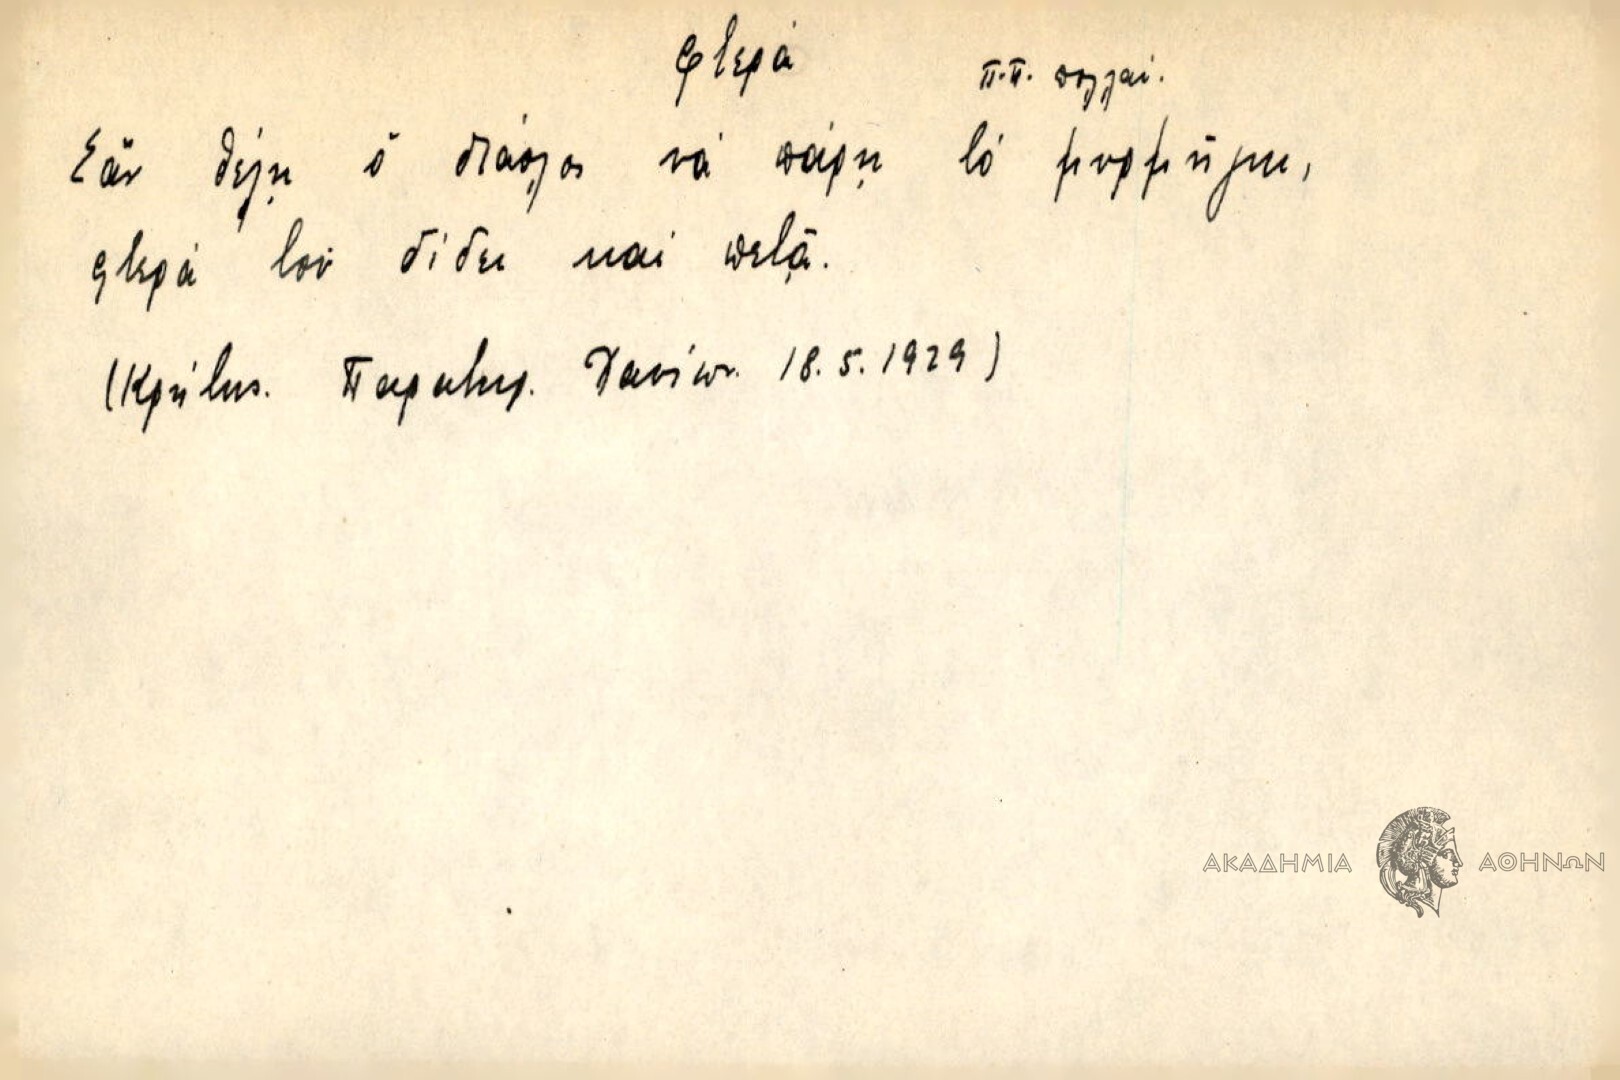 φτερά
π.π. πολλαί.
Σἄν θέλῃ ὁ διάολος νά πάρῃ τό μυρμῆγκι,
φτερά τοῦ δίδει καί πετᾷ.
(Κρήτης. Παρατηρ. Χανίων. 18.5.1929)
ΑΚΑΔΗΜΙΑ ΑΘΗΝΩΝ